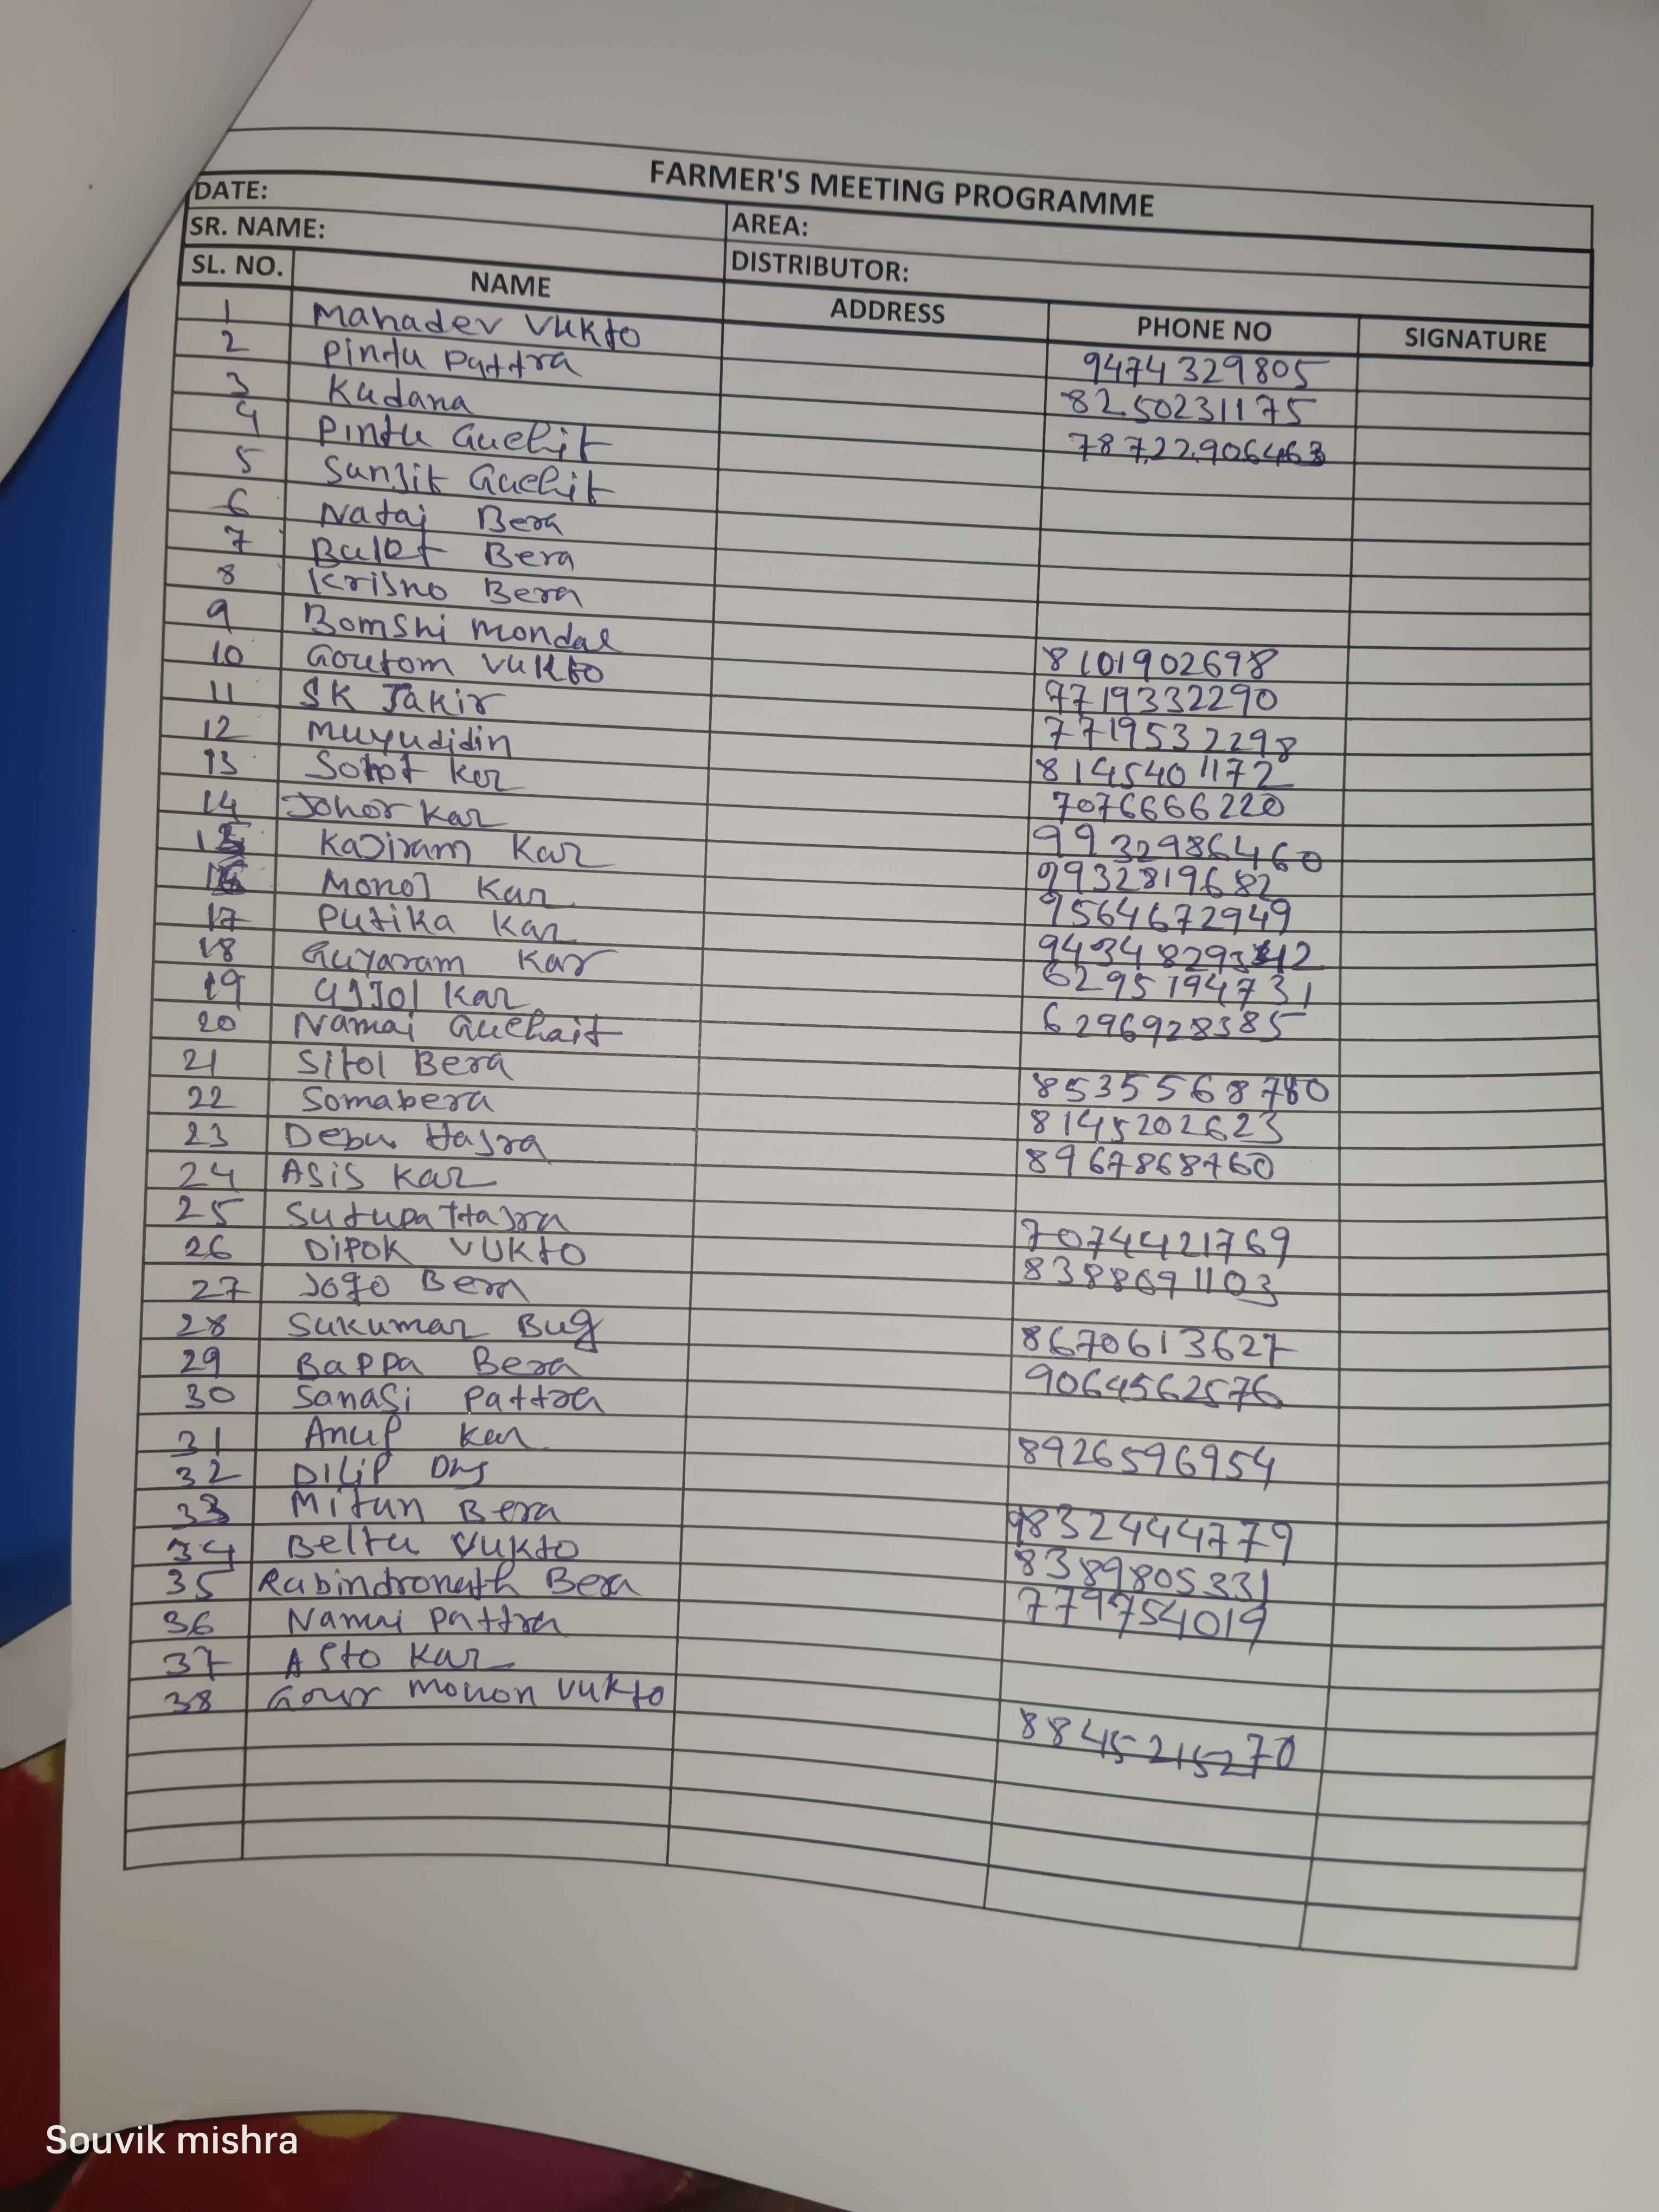 FARMER'S MEETING PROGRAMME
DATE: AREA:
SR. NAME: DISTRIBUTOR:
SL. NO. NAME ADDRESS PHONE NO SIGNATURE
1 Mahadev Vukto 9474329805
2 Pintu Pattra 8250231175
3 Kudana 78722906463
4 Pintu Guchit
5 Sunjit Guchit
6 Nataj Bera
7 Bulet Bera
8 Krisno Bera
9 Bomshi mondal 8101902698
10 Goutom Vukto 7719332290
11 SK Jakir 7719532298
12 Muyudidin 8145401172
13 Kar 7076666220
14 Johor Kar 9932986460
15 Kajiram Kar 9932819682
16 Monoj Kar 9564672949
17 Putika Kar
18 Guyaram Kar 6295194731
19 Kar 6296928385
20 Namai Guchait
21 Sitol Bera 8535568780
22 Somabera 8145202623
23 Debu Hajra 8967868760
24 Asis Kar
25 Sutupa Hajra 7074421769
26 Dipok Vukto 8388691103
27 Jogo Bera
28 Sukumar Bug 8670613627
29 Bappa Bera 9064562576
30 Sanasi Pattra
31 Anup Kar 8926596954
32 Dilip Das
33 Mitun Bera 9832444779
34 Beltu Vukto 8389805331
35 Rabindronath Bera 779754019
36 Namai Pattra
37 Asto Kar
38 Gour Mohon Vukto 8845215270
Souvik mishra